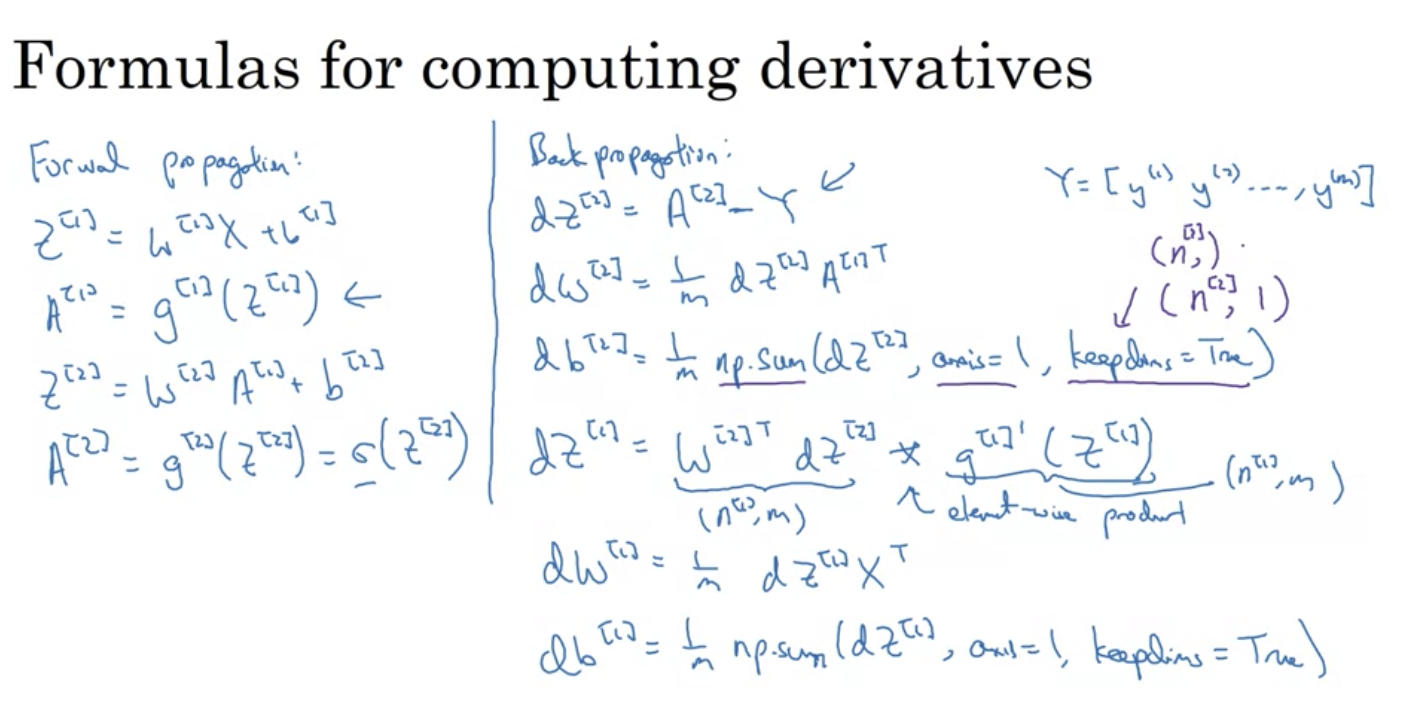 Formulas for computing derivatives
Forwal propagation:
Z^[1] = W^[1]X + b^[1]
A^[1] = g^[1](Z^[1]) ←
Z^[2] = W^[2] A^[1] + b^[2]
A^[2] = g^[2](Z^[2]) = σ(Z^[2])
Back propagation:
dZ^[2] = A^[2] - Y ↙
dW^[2] = 1/m dZ^[2] A^[1]T
db^[2] = 1/m np.sum(dZ^[2], axis=1, keepdims=True)
dZ^[1] = W^[2]T dZ^[2] * g^[1]'(Z^[1])
(n^[1], m) ↖ element-wise product (n^[1], m)
dW^[1] = 1/m dZ^[1] X^T
db^[1] = 1/m np.sum(dZ^[1], axis=1, keepdims=True)
Y = [y^(1) y^(2) ...., y^(m)]
(n^[2],)
↙ (n^[2], 1)